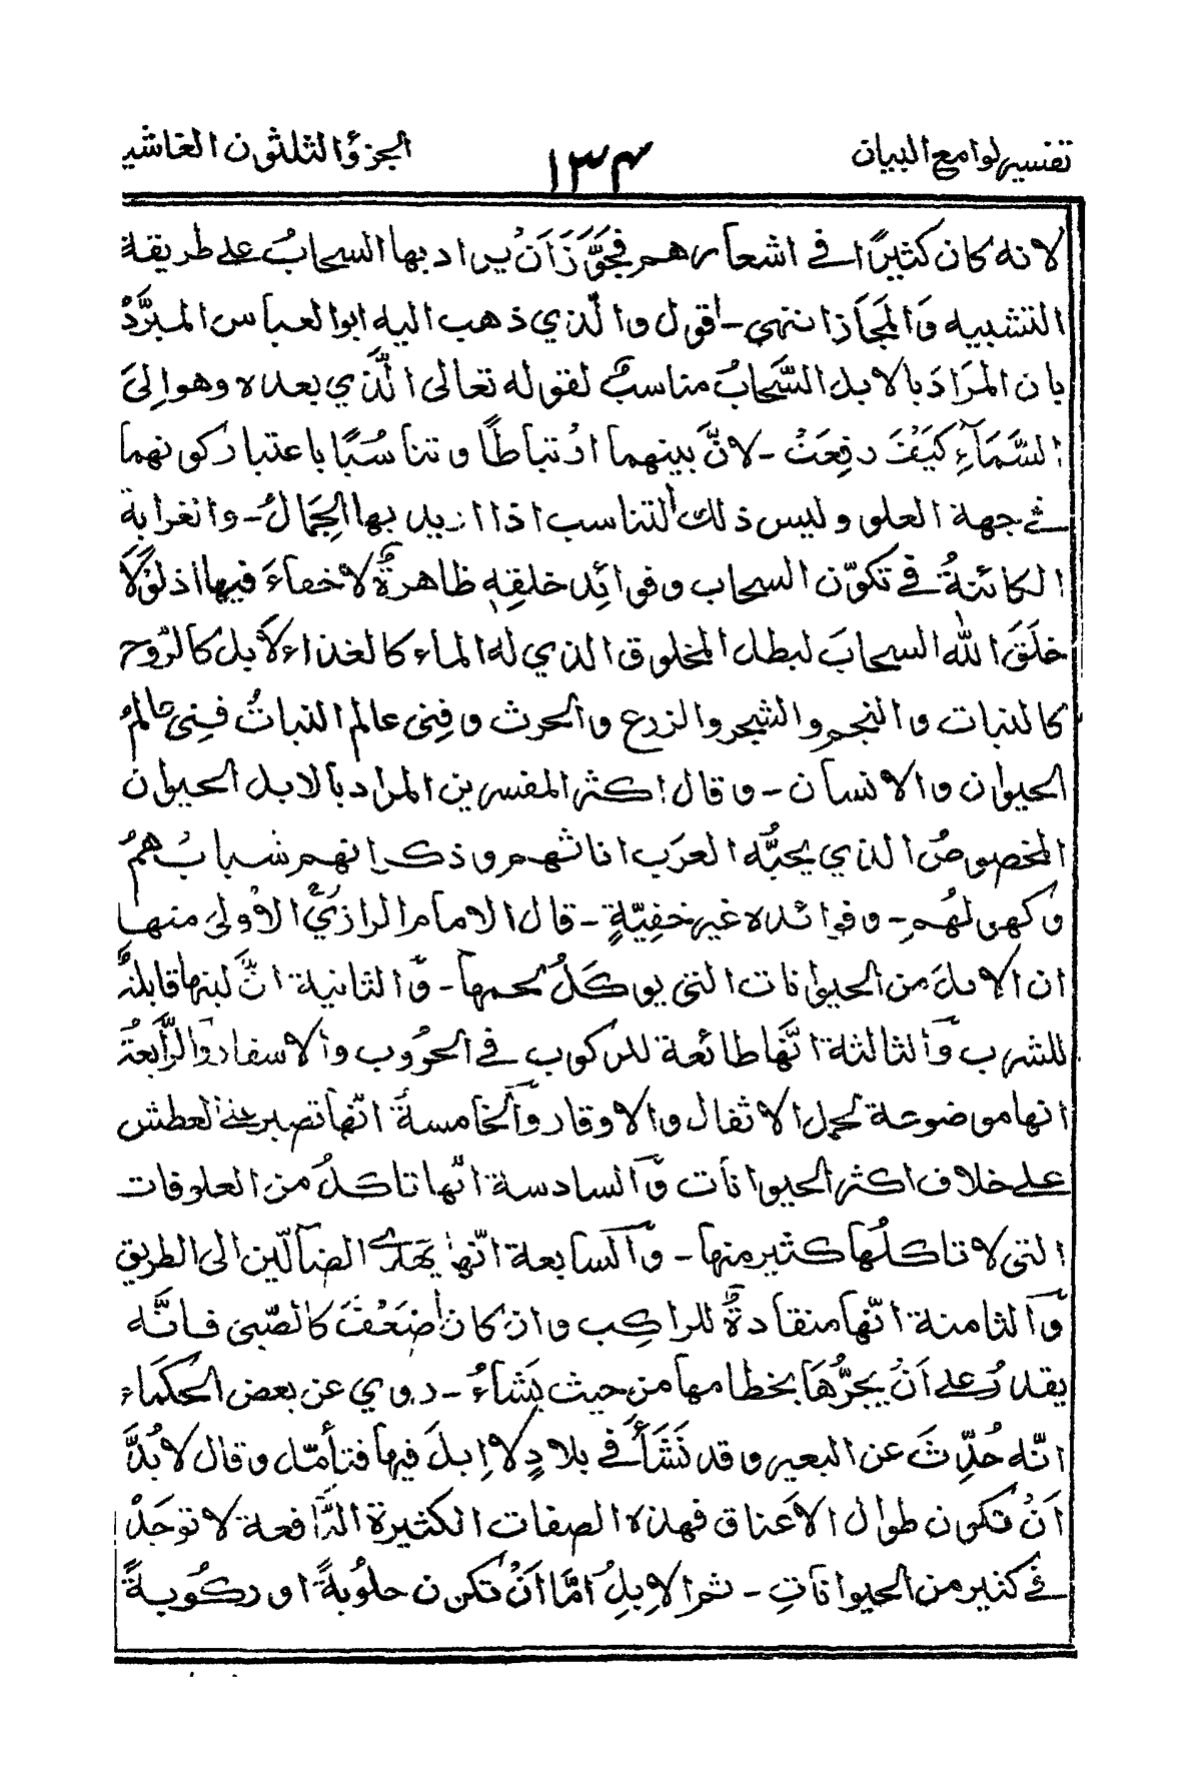 تفسير لوامع البيان ١٣٤ الجزؤ الثلثون الغاشي
لانه كان كثيرًا في اشعارهم فجَوَّزَ أن يراد بها السحابُ على طريقة
التشبيه وَالمَجَاز انتهى - اقول والّذي ذهب اليه ابو العباس المبرَّدْ
بان المرَادَ بالابل السَّحابُ مناسبٌ لقوله تعالى الَّذي بعده وهو اِلىَ
السَّمَآءِ كَيْفَ رفِعَتْ - لانَّ بينهما ارْتباطًا وتناسُبًا باعتبار كونهما
في جهة العلو وليس ذلك التناسب اذا اريد بها الجِمَالُ - وانغرابة
الكائنةُ في تكوّن السحاب وفوائد خلقِهٖ ظاهرةٌ لاخفاءَ فيها اذلوْلَا
خلَقَ الله السحابَ لبطل المخلوق الذي له الماء كالغذاء لَا بل كالرّوح
كالنبات والنجم والشجر والزرع والحرث وفِنى عالم النباتُ فِنى عالمُ
الحيوان والانسان - وقال اكثر المفسرين المراد بالابل الحيوان
المخصوصُ الذي يحبُّه العرَب اناثهم وذكرانهم شبابُهمُ
وكهولهُمِ - وفوائده غير خفِيّةٍ - قال الامام الرازيُّ الاوْلىَ منها
ان الابلَ من الحيوانات التى يوكَلُ لحمها - وّالثانية انَّ لبنها قابلةٌ
للشرب وَالثالثة انَّها طائعة للركوب في الحرُوب والاسفار وَالرَّابعةُ
انها موضوعة لحمل الاثفال والاوقار وَالخامسةُ انّها تصبر على العطش
على خلاف اكثر الحيوانات وَّالسادسة انّها تاكلُ من العلوفات
التى لا تاكلُها كثير منها - وَالسابعة انّها يهدى الضالّين الى الطريق
وَّالثامنة انّها منقادةٌ للراكِب وان كان اضعَفَ كالصّبى فانَّه
يقدرُ على اَنْ يجرَّهَا بخطامها من حيث يَشَاءُ - روي عن بعض الحكَماء
انّه حُدِّثَ عن البعير وقد نَشَأَ في بلادٍ لا اِبلَ فيها فتأمّل وقال لا بُدَّ
اَنْ تكون طوال الاَعناق فهذه الصفات الكثيرة الرَّافعة لا توجَدْ
في كثير من الحيواناتِ - ثم الاِبلِ اَمَّا اَنْ تكون حلوُبةً او ركُوبةً